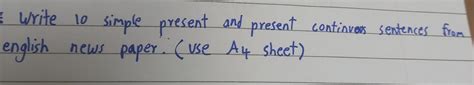 : Write 10 simple present and present continuous sentences from
english news paper. (use A4 sheet)